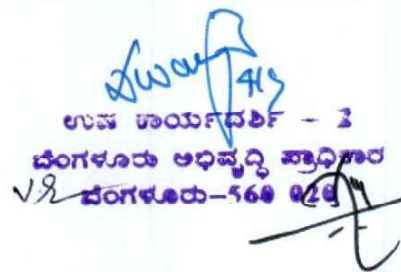 ಉಪ ಕಾರ್ಯದರ್ಶಿ - 3
ಬೆಂಗಳೂರು ಅಭಿವೃದ್ಧಿ ಪ್ರಾಧಿಕಾರ
ಬೆಂಗಳೂರು-560 020